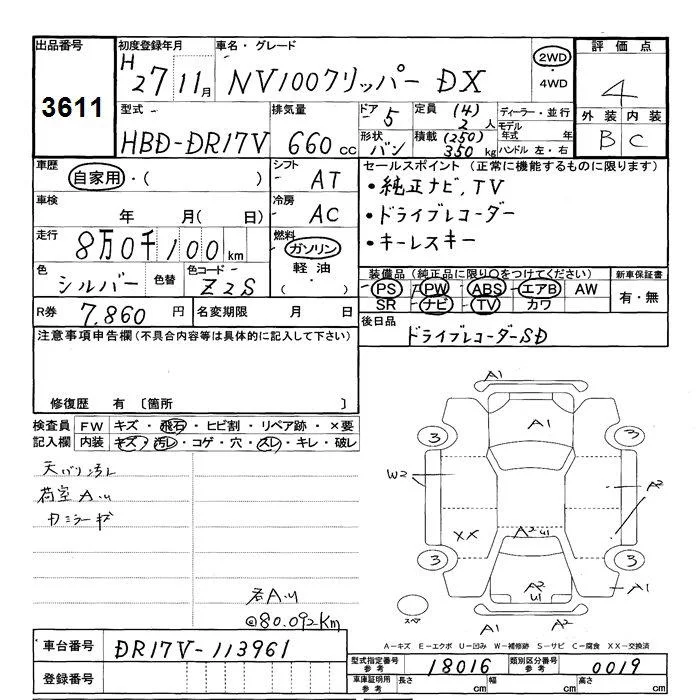 出品番号
3611
初度登録年月
H 27 11月
車名・グレード
NV100クリッパー DX
2WD
・
4WD
評価点
4
外装 内装
B C
型式
HBD-DR17V
排気量
660 cc
ドア 5
形状 バン
定員 (4) 2 人
積載 (250) 350 kg
ディーラー・並行
モデル年式 年
ハンドル 左・右
車歴
自家用・( )
シフト
AT
車検
年 月( 日)
冷房
AC
走行
8万0千100 km
燃料
ガソリン
・
軽油・
( )
色
シルバー
色替
色コード
Z2S
R券 7,860 円
名変期限 月 日
セールスポイント(正常に機能するものに限ります)
・純正ナビ,TV
・ドライブレコーダー
・キーレスキー
装備品(純正品に限り○をつけてください)
PS PW ABS エアB AW
SR ナビ TV カワ
新車保証書
有・無
後日品
ドライブレコーダーSD
注意事項申告欄(不具合内容等は具体的に記入して下さい)
修復歴 有〔箇所 〕
検査員記入欄
FW キズ・飛石・ヒビ割・リペア跡・×要
内装 キズ・汚レ・コゲ・穴・スレ・キレ・破レ
天バリ汚レ
荷室 A.u
カミラーキズ
A.u
@80.092Km
A1
A1
A1
3
3
W2
XX
A2 u1
3
3
A1
A2 u1
スペア
A1
A2
A-キズ E-エクボ U-凹み W-補修跡 S-サビ C-腐食 XX-交換済
車台番号
DR17V-113961
登録番号
型式指定番号
参考
18016
類別区分番号
参考
0019
車庫証明用
参考
長さ cm
幅 cm
高さ cm